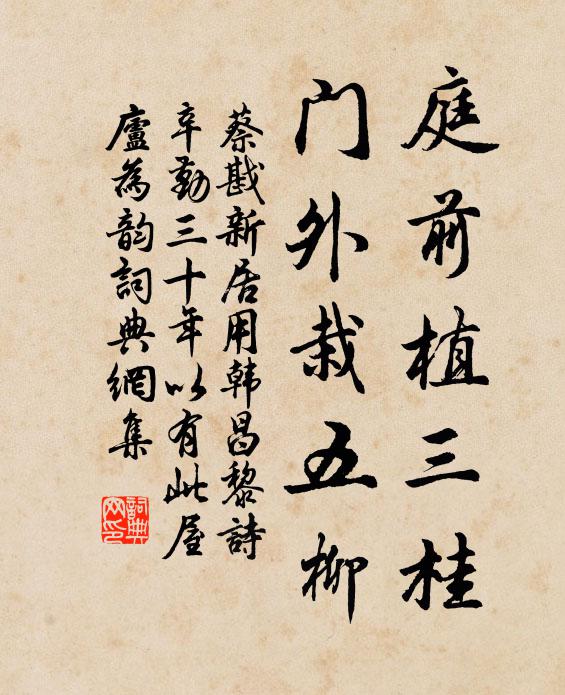 庭前植三桂
门外栽五柳
蔡戡新居用韩昌黎詩
辛勤三十年以有此屋
廬為韵詞典網集
詞典网印